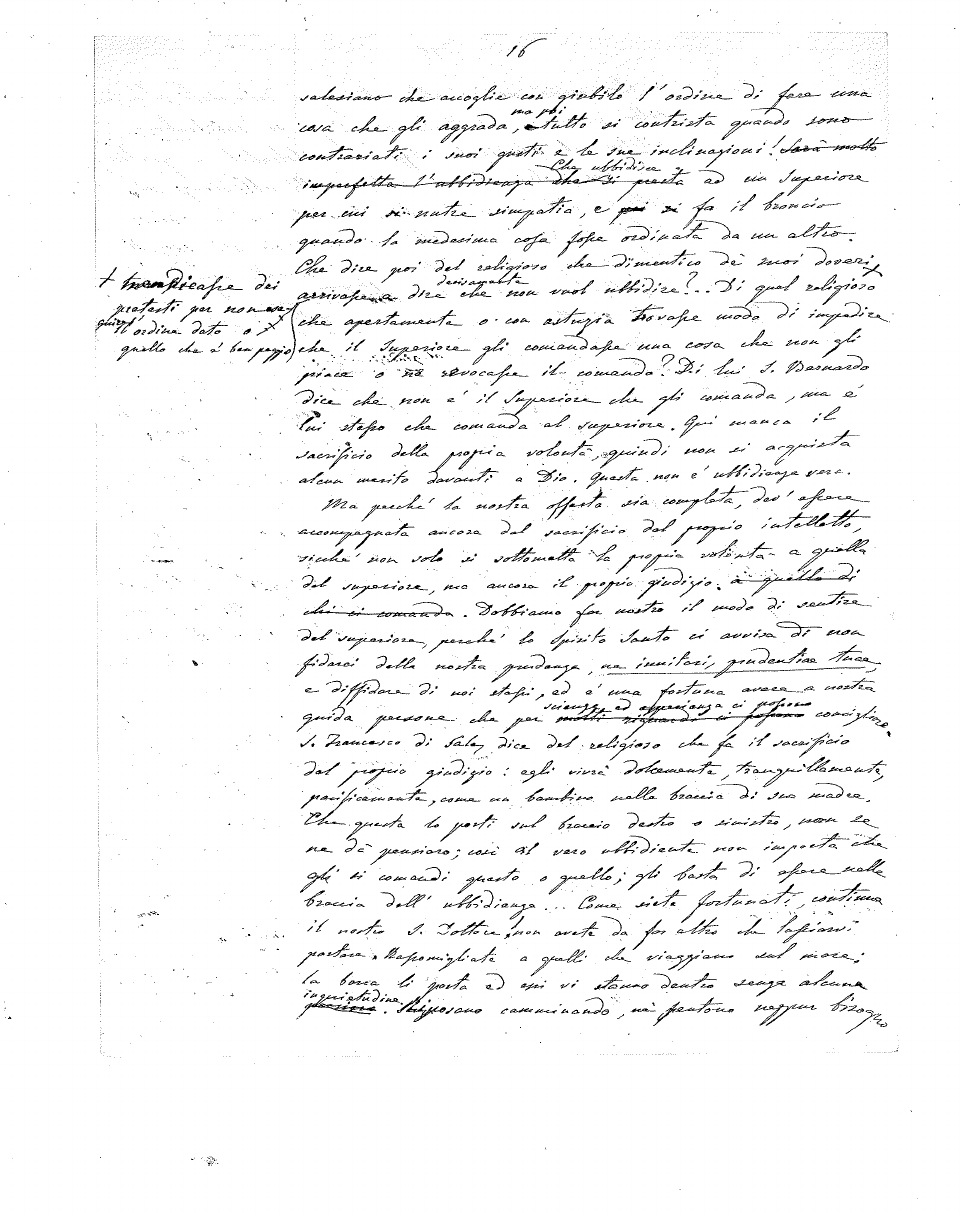 16
salesiano che accoglie con giubilo l'ordine di fare una
ma poi
cosa che gli aggrada, tutto si contrista quando sono
contrariati i suoi gusti e le sue inclinazioni! Sarà molto
Che ubbidire
imperfetta l'ubbidienza che si presta ad un Superiore
per cui si nutre simpatia, e poi si fa il broncio
quando la medesima cosa fosse ordinata da un altro.
Che dire poi del religioso che dimentico de' suoi doveri
decisamente
arrivasse a dire che non vuol ubbidire?.. Di quel religioso +
+ mendicasse dei
pretesti per non ese
guire l'ordine dato o
quello che è ben peggio
che apertamente o con astuzia trovasse modo di impedire
che il Superiore gli comandasse una cosa che non gli
piace o ne revocasse il comando? Di lui S. Bernardo
dice che non è il Superiore che gli comanda, ma è
lui stesso che comanda al superiore. Qui manca il
sacrificio della propria volontà, quindi non si acquista
alcun merito davanti a Dio. Questa non è ubbidienza vera.
Ma perché la nostra offerta sia completa, dev' essere
accompagnata ancora dal sacrificio del proprio intelletto,
sicché non solo si sottometta la propria volontà a quella
del superiore, ma ancora il proprio giudizio. a quello di
chi ci comanda. Dobbiamo far nostro il modo di sentire
del superiore, perché lo Spirito Santo ci avvisa di non
fidarci della nostra prudenza, ne innitaris prudentiae tuae,
e diffidare di noi stessi, ed è una fortuna avere a nostra
scienza ed esperienza ci possono
guida persone che per molti riguardi ci possono consigliare.
S. Francesco di Sales dice del religioso che fa il sacrificio
del proprio giudizio: egli vivrà dolcemente, tranquillamente,
pacificamente, come un bambino nelle braccia di sua madre.
Che questa lo porti sul braccio destro o sinistro, non se
ne dà pensiero; così al vero ubbidiente non importa che
gli si comandi questo o quello; gli basta di essere nelle
braccia dell' ubbidienza... Come siete fortunati, continua
il nostro S. Dottore, non avete da far altro che lasciarvi
portare. Rassomigliate a quelli che viaggiano sul mare:
la barca li porta ed essi vi stanno dentro senza alcuna
inquietudine
pensiero. Riposano camminando, nè sentono neppur bisogno